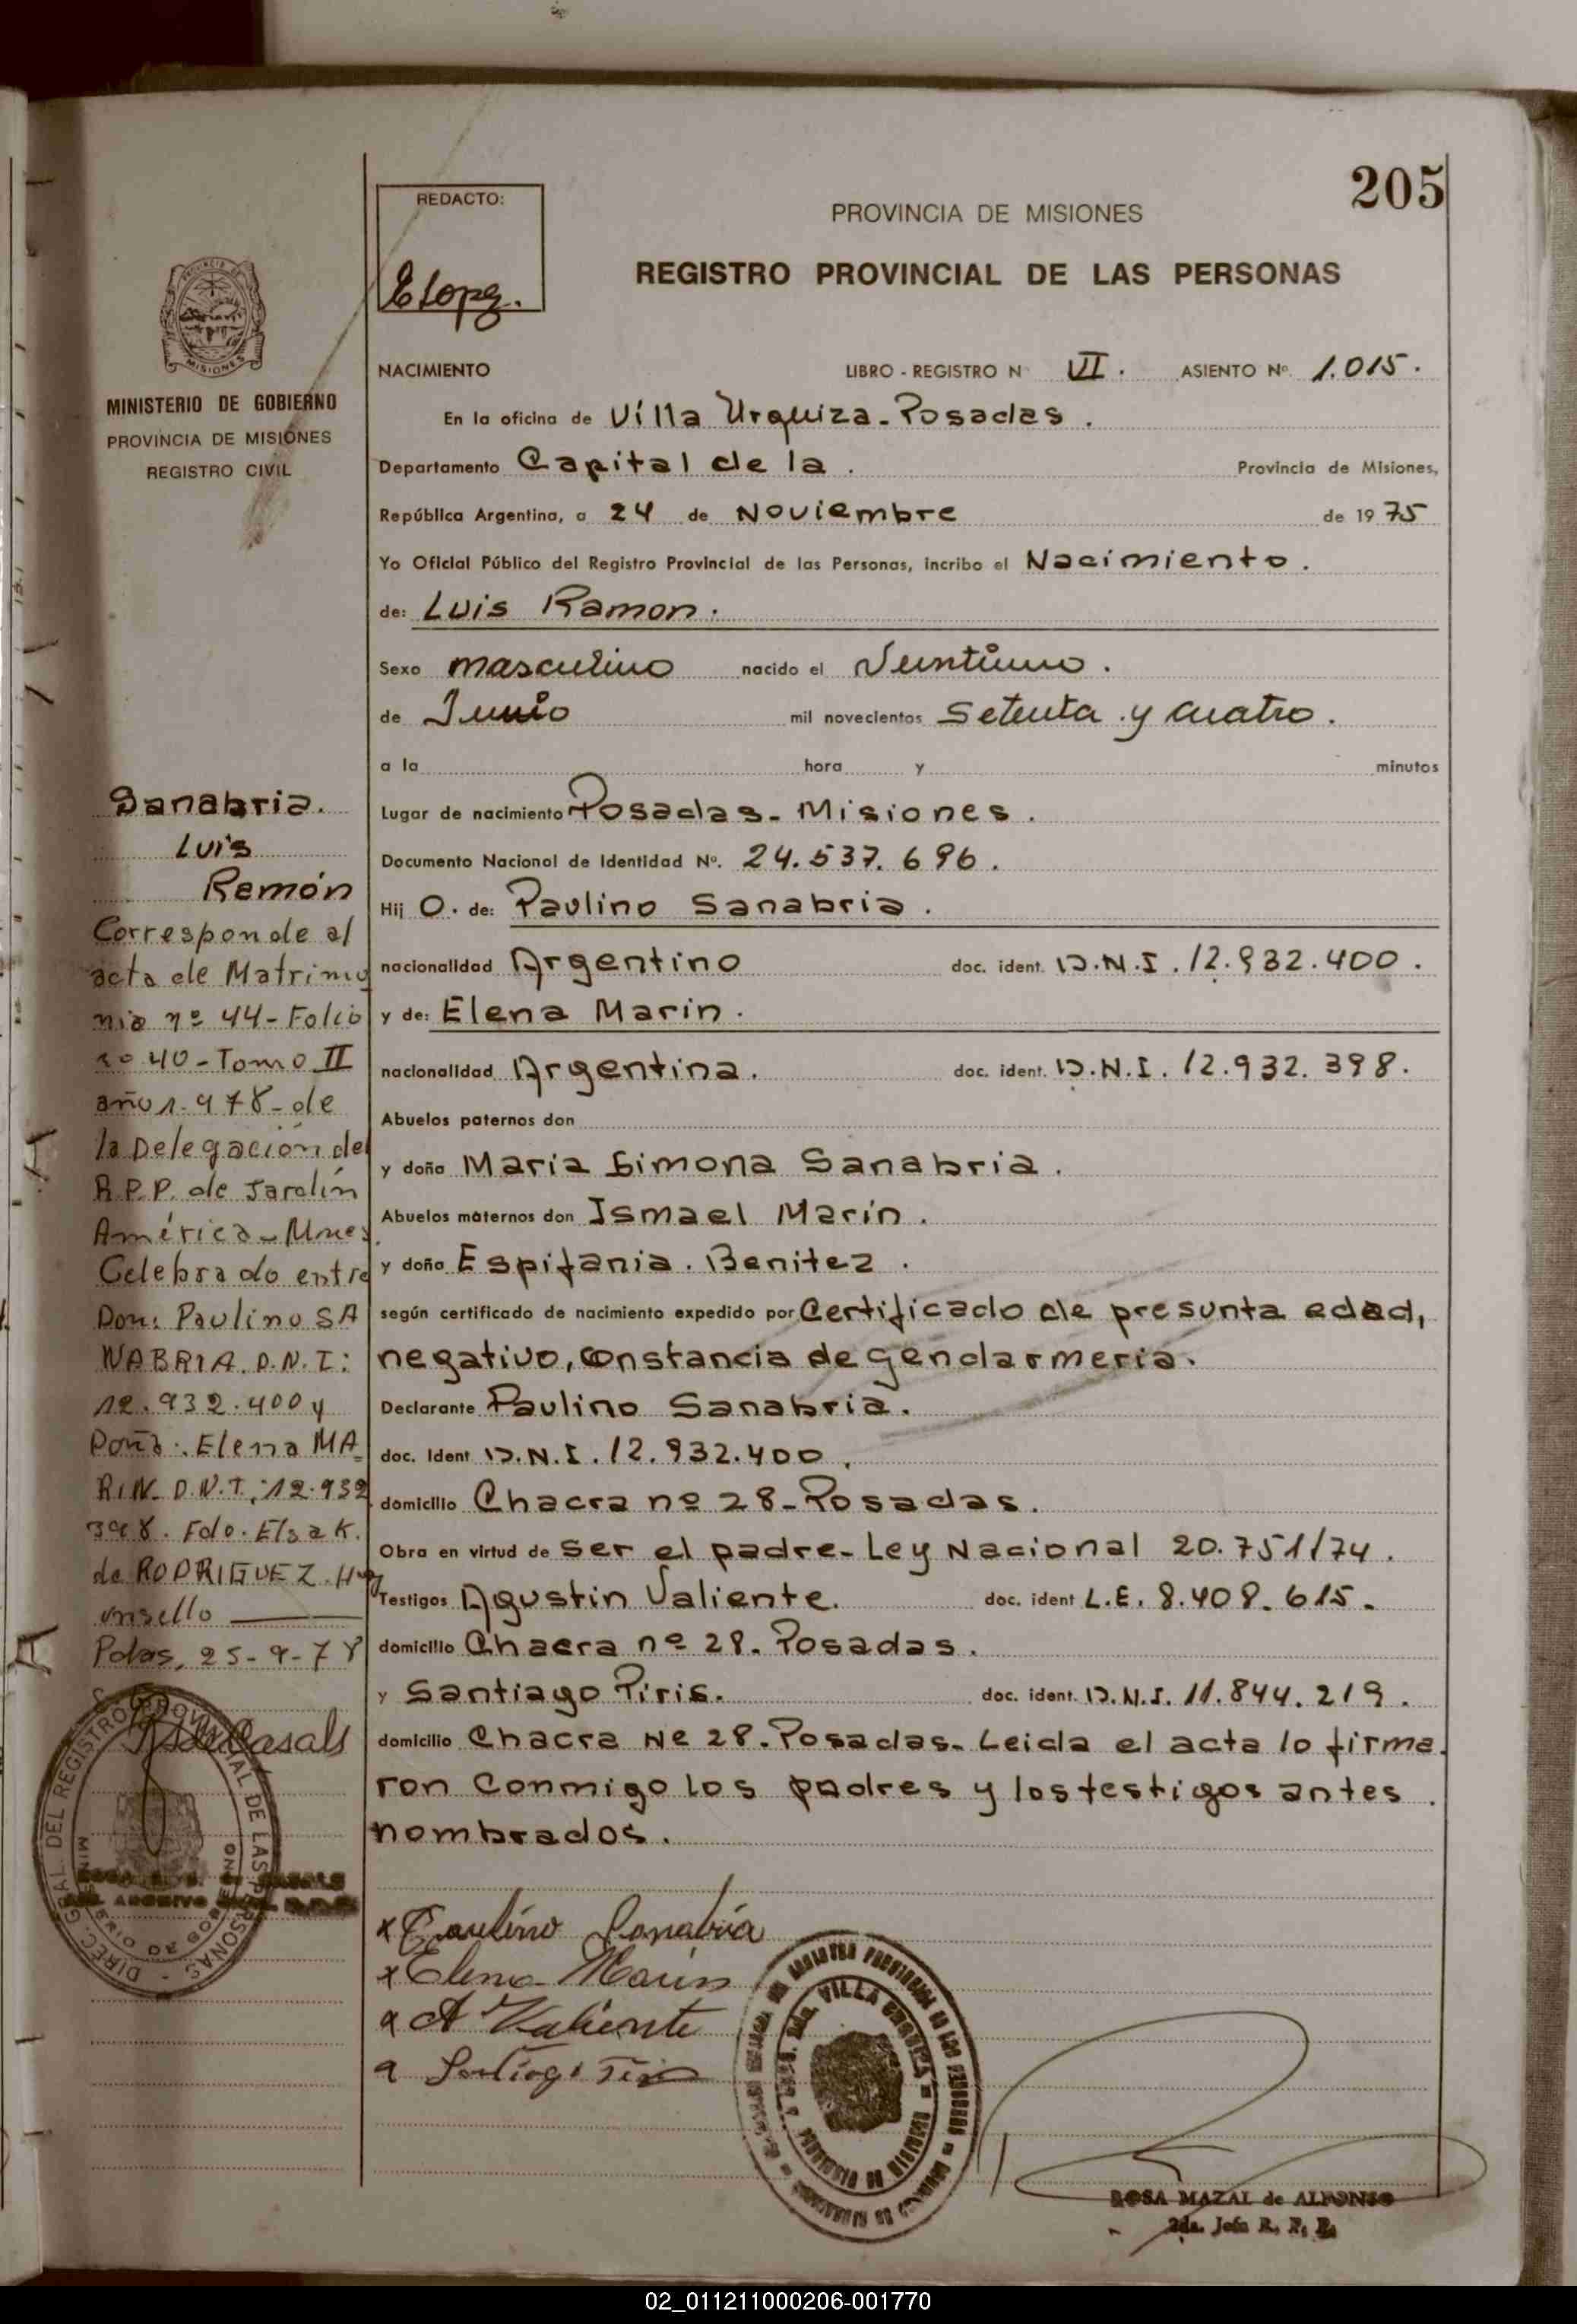 205
REDACTO:
PROVINCIA DE MISIONES
REGISTRO PROVINCIAL DE LAS PERSONAS
NACIMIENTO LIBRO - REGISTRO Nº VI. ASIENTO Nº 1.015.
En la oficina de Villa Urquiza - Posadas.
Departamento Capital de la. Provincia de Misiones,
República Argentina, a 24 de Noviembre de 1975
Yo Oficial Público del Registro Provincial de las Personas, incribo el Nacimiento.
de: Luis Ramon.
Sexo masculino nacido el Veintiuno.
de Junio mil novecientos Setenta y cuatro.
a la hora y minutos
Lugar de nacimiento Posadas - Misiones.
Documento Nacional de Identidad Nº. 24.537.696.
Hij O. de: Paulino Sanabria.
nacionalidad Argentino doc. ident. D.N.I. 12.932.400.
y de: Elena Marin.
nacionalidad Argentina. doc. ident. D.N.I. 12.932.398.
Abuelos paternos don
y doña Maria Simona Sanabria.
Abuelos maternos don Ismael Marín.
y doña Espifania. Benitez.
según certificado de nacimiento expedido por Certificado de presunta edad,
negativo, constancia de gendarmeria.
Declarante Paulino Sanabria.
doc. Ident D.N.I. 12.932.400.
domicilio Chacra nº 28 - Posadas.
Obra en virtud de ser el padre - Ley Nacional 20.751/74.
Testigos Agustin Valiente. doc. ident L.E. 8.408.615.
domicilio Chacra nº 28. Posadas.
y Santiago Piris. doc. ident. D.N.I. 11.844.219.
domicilio Chacra Nº 28. Posadas. Leida el acta lo firma
ron conmigo los padres y los testigos antes.
nombrados.
x Paulino Sanabria
x Elena Marin
x A Valiente
VILLA URQUIZA
ROSA MAZAL de ALFONSO
2da. Jefa R. P. P.
PROVINCIA DE
MISIONES
MINISTERIO DE GOBIERNO
PROVINCIA DE MISIONES
REGISTRO CIVIL
Sanabria.
Luis
Ramón
Corresponde al
acta de Matrimo
nio nº 44 - Folio
nº 40 - Tomo II
año 1.978 - de
la Delegación del
R.P.P. de Jardín
América - Mnes.
Celebrado entre
Don: Paulino SA
NABRIA D.N.I:
12.932.400 y
Doña: Elena MA
RIN. D.N.I.: 12.932
398. Fdo. Elsa K.
de RODRIGUEZ. Hay
un sello
Pdas, 25-9-78
DIREC. GRAL. DEL REGISTRO PROVINCIAL DE LAS PERSONAS
MINISTERIO DE GOBIERNO
02_011211000206-001770